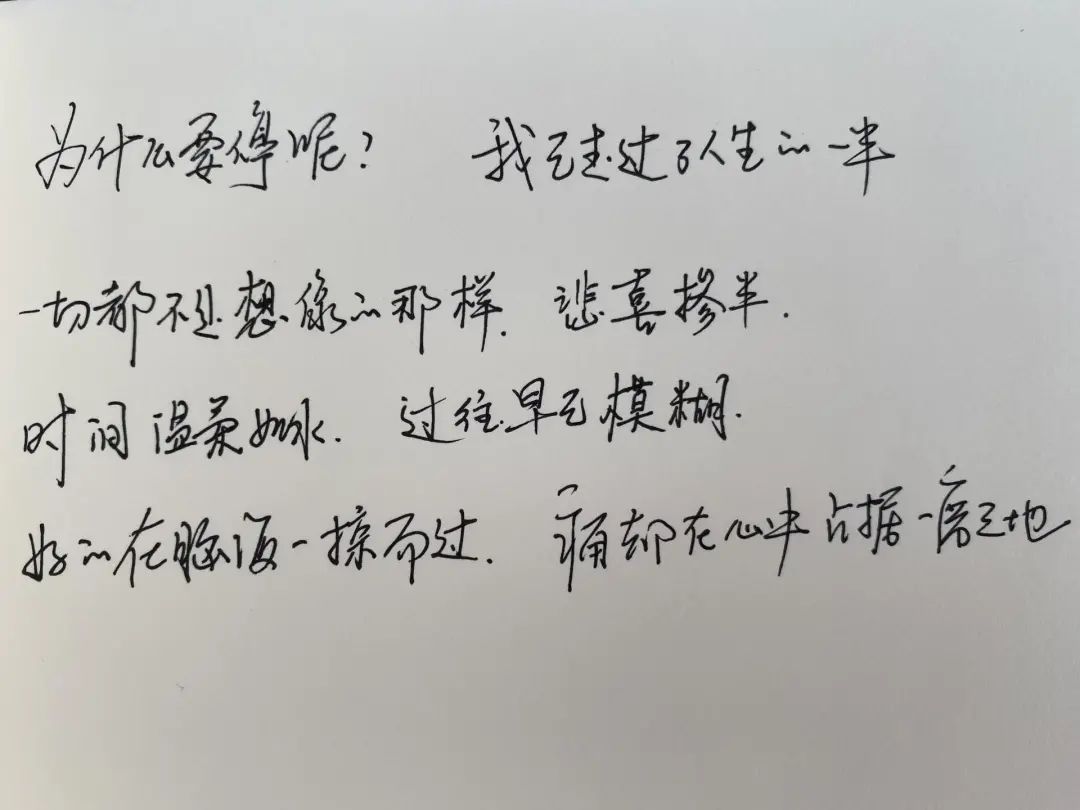 为什么要停呢？ 我已走过了人生的一半
一切都不是想像的那样. 悲喜掺半.
时间温柔如水. 过往早已模糊.
好的在脑海一掠而过. 痛却在心中占据一席之地